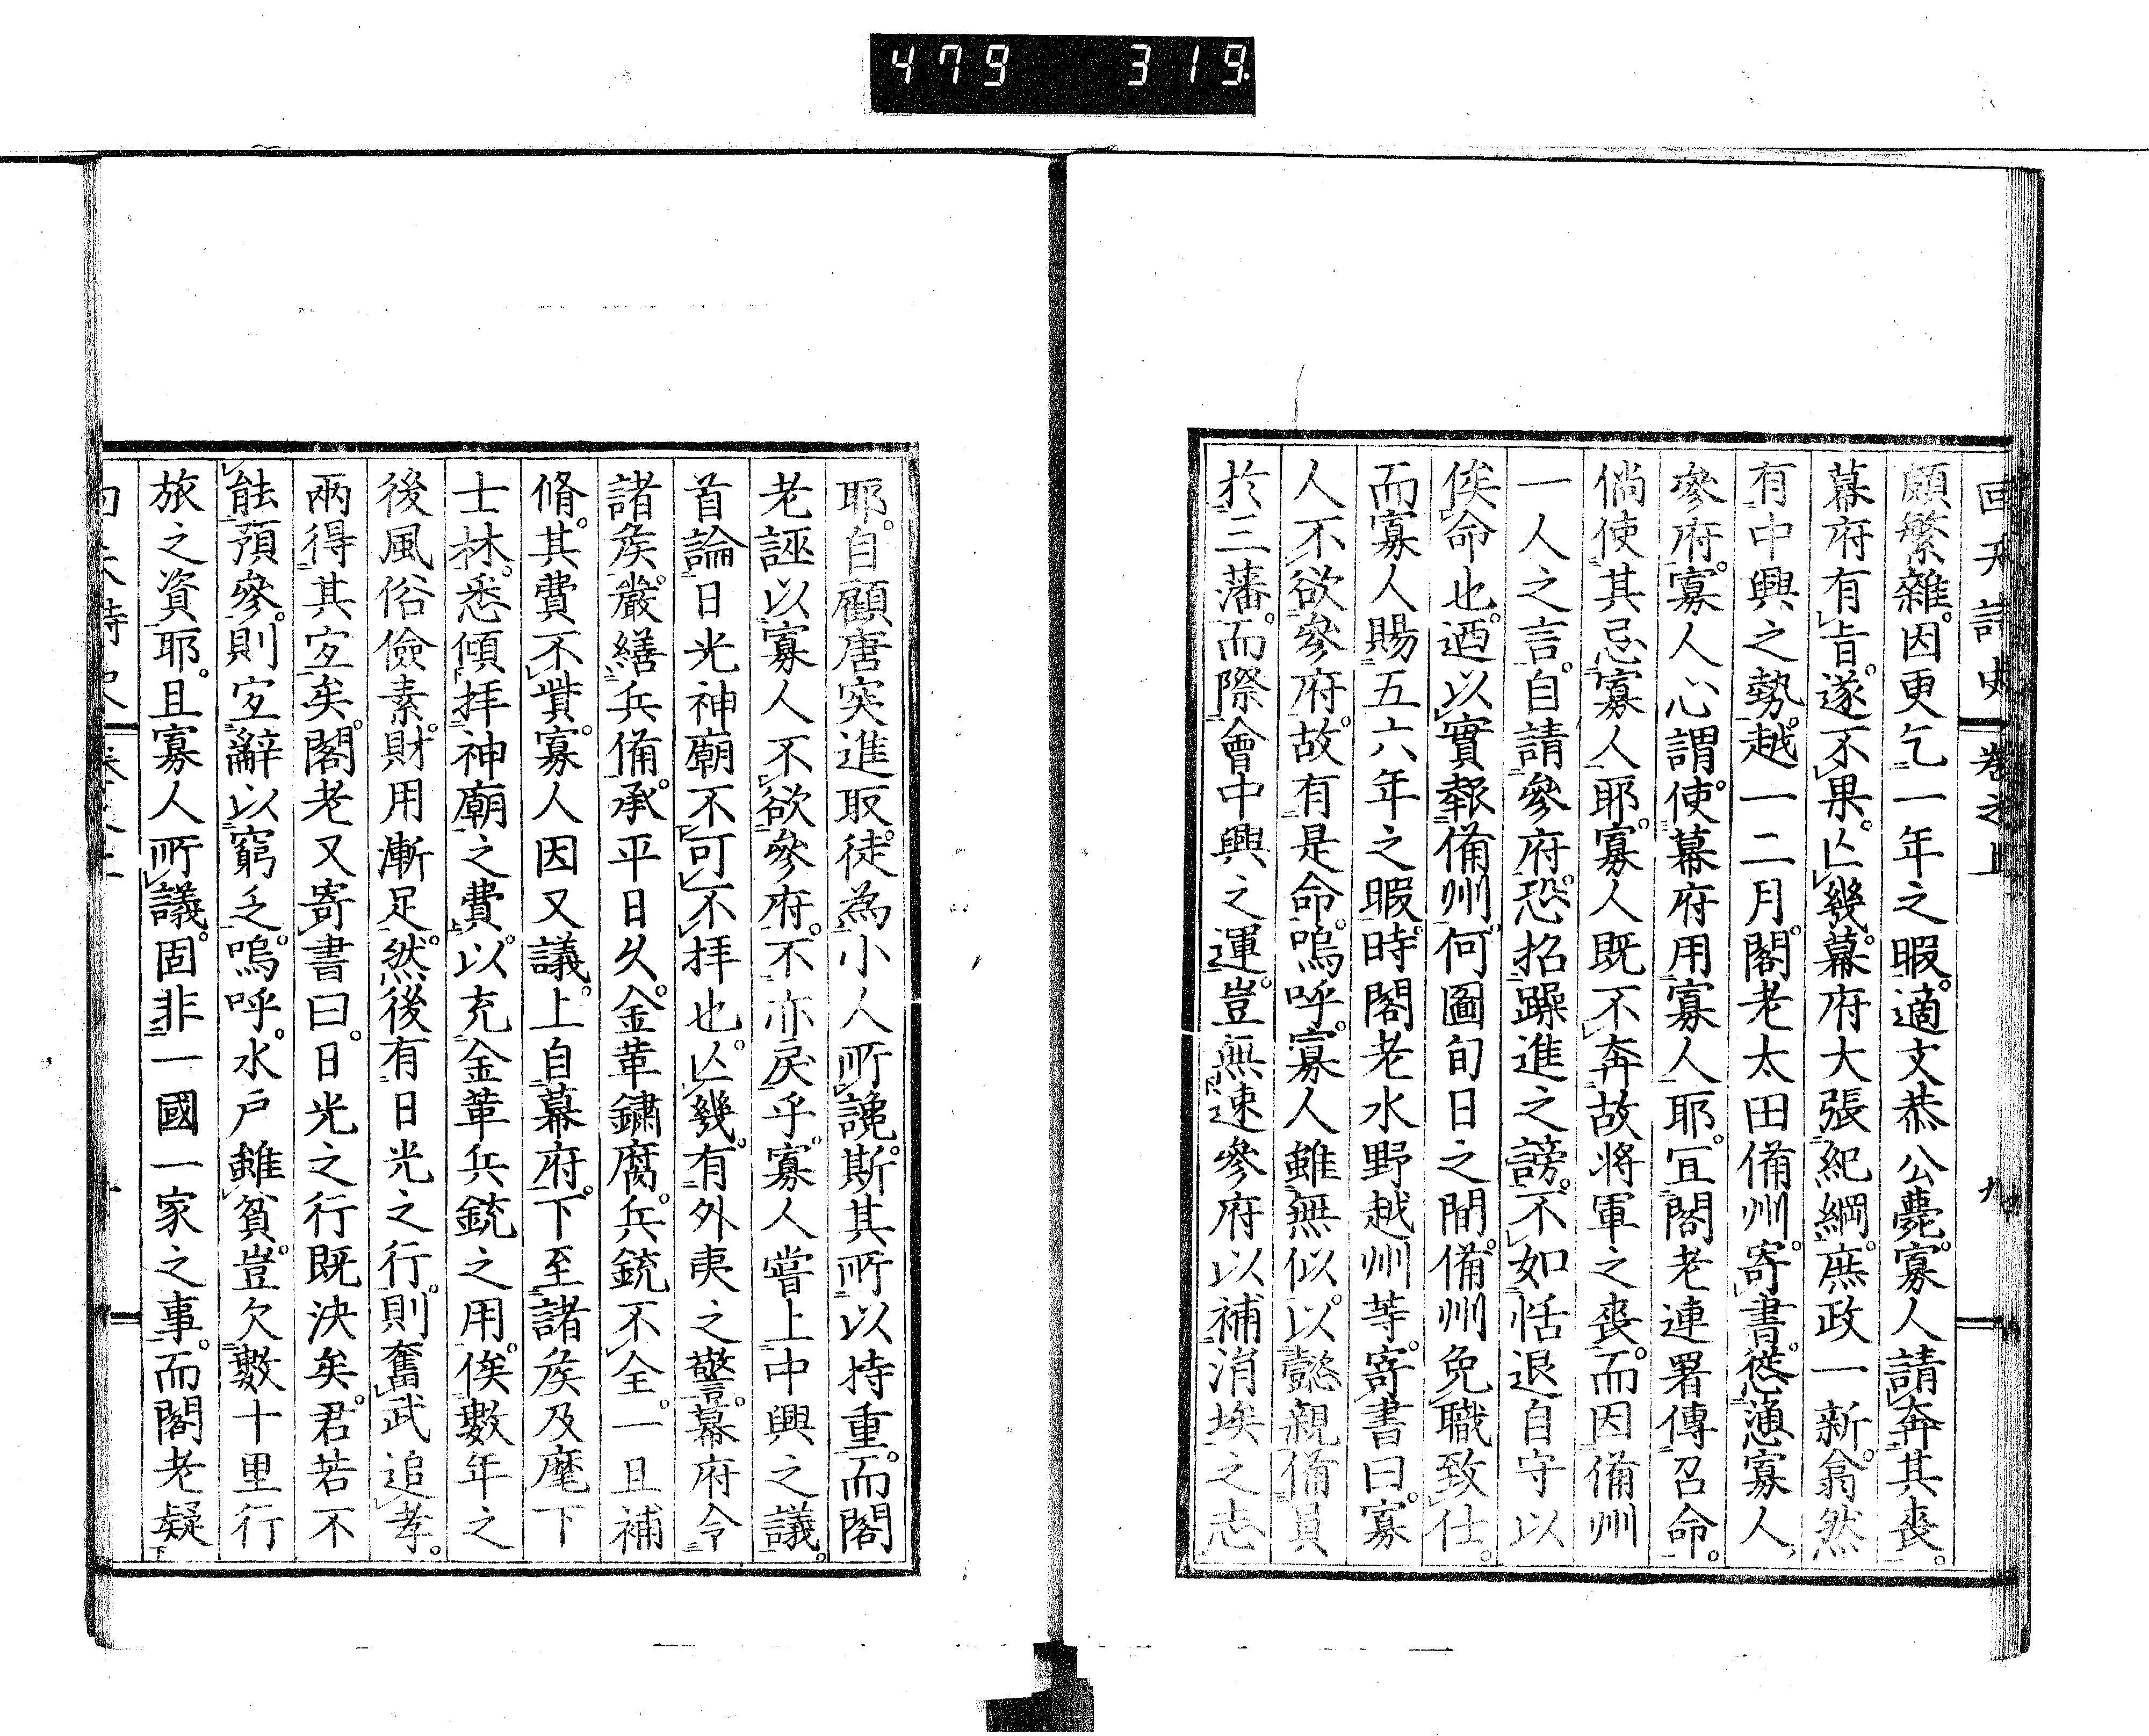 479 319.
回天詩史 卷之上 九
頗繁雜。因更乞一年之暇。適文恭公薨。寡人請奔其喪。
幕府有旨。遂不果。亡幾。幕府大張紀綱。庶政一新。翕然
有中興之勢。越一二月。閣老太田備州。寄書。慫慂寡人
參府。寡人心謂。使幕府用寡人耶。宜閣老連署傳召命。
倘使其忌寡人耶。寡人既不奔故將軍之喪。而因備州
一人之言。自請參府。恐招躁進之謗。不如恬退自守以
俟命也。迺以實報備州。何圖旬日之間。備州免職致仕。
而寡人賜五六年之暇。時閣老水野越州等。寄書曰。寡
人不欲參府。故有是命。嗚呼。寡人雖無似。以懿親備員
於三藩。而際會中興之運。豈無速參府以補涓埃之志
耶。自顧唐突進取。徒為小人所讒。斯其所以持重。而閣
老誣以寡人不欲參府。不亦戾乎。寡人嘗上中興之議。
首論日光神廟不可不拜也。亡幾。有外夷之警。幕府令
諸矦。嚴繕兵備。承平日久。金革鏽腐。兵銃不全。一旦補
脩。其費不貲。寡人因又議。上自幕府。下至諸矦及麾下
士林。悉傾拜神廟之費。以充金革兵銃之用。俟數年之
後風俗儉素。財用漸足。然後有日光之行。則奮武追孝。
兩得其宜矣。閣老又寄書曰。日光之行既決矣。君若不
能預參。則宜辭以窮乏。嗚呼。水戶雖貧。豈欠數十里行
旅之資耶。且寡人所議。固非一國一家之事。而閣老疑